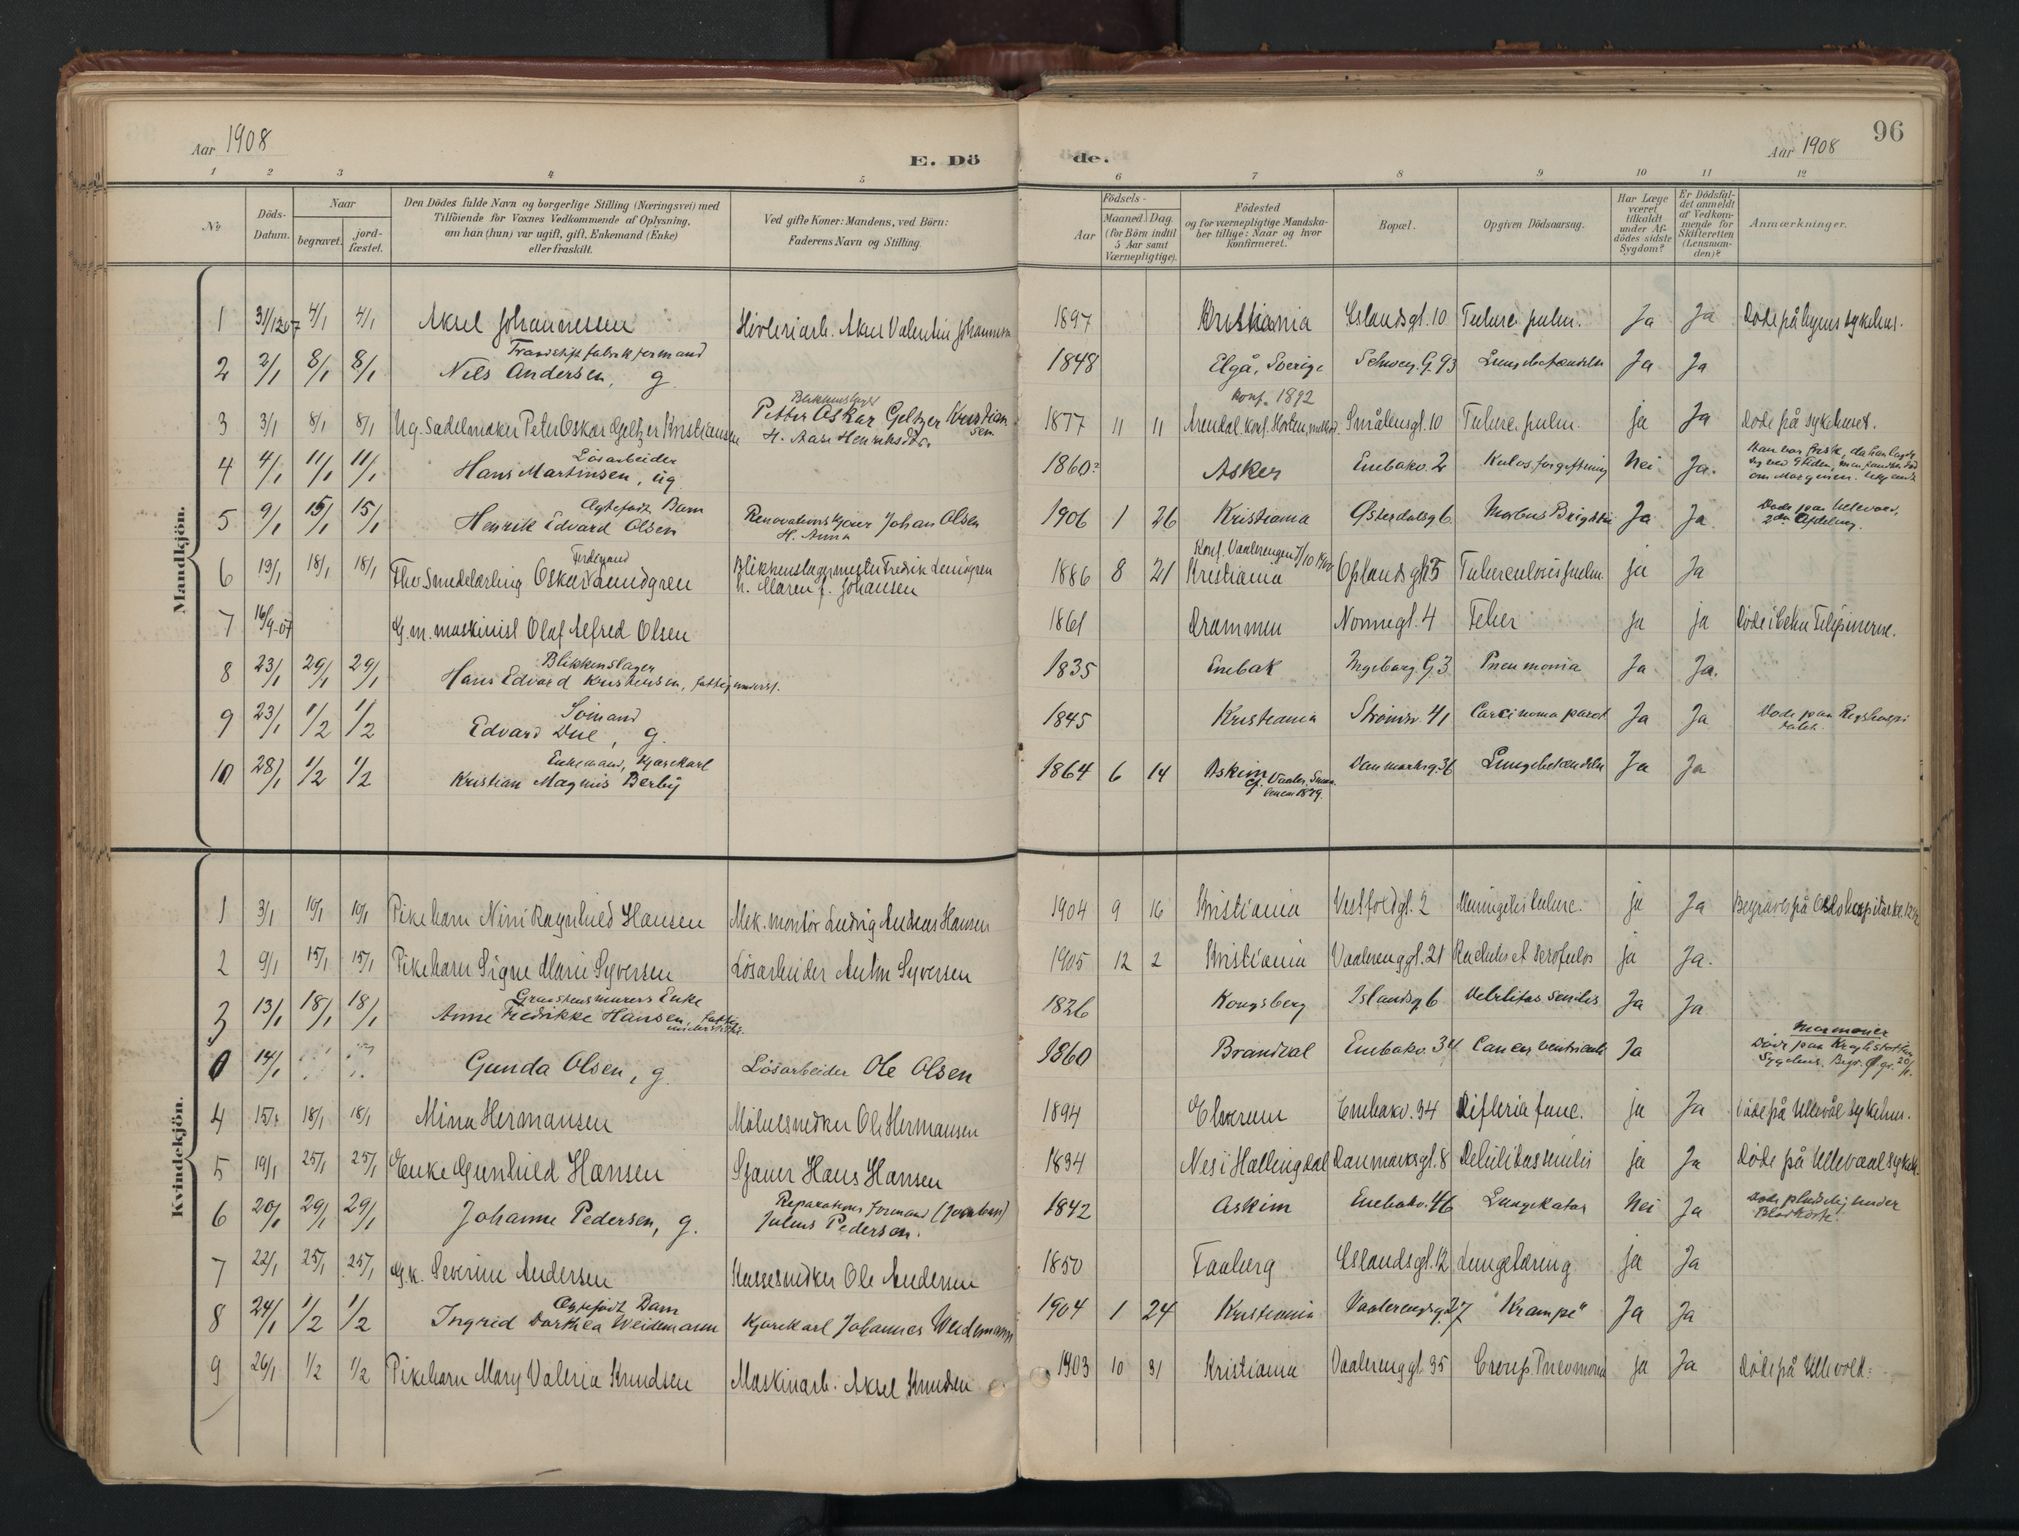 Aar 1908
E. Dö de.
Aar 1908
96
1 2 3 4 5 6 7 8 9 10 11 12
No
Döds-Datum.
Naar
begravet.
jord-fæstet.
Den Dödes fulde Navn og borgerlige Stilling (Næringsvei) med
Tilföiende for Voxnes Vedkommende af Oplysning,
om han (hun) var ugift, gift, Enkemand (Enke)
eller fraskilt.
Ved gifte Koner: Mandens, ved Börn:
Faderens Navn og Stilling.
Födsels-
Aar
Maaned. Dag.
(for Börn indtil
5 Aar samt
Værnepligtige).
Födested
og for værnepligtige Mandska-
ber tillige: Naar og hvor
konfirmeret.
Bopæl.
Opgiven Dödsaarsag.
Har Læge
været
tilkaldt
under Af-
dödes sidste
Sygdom?
Er Dödsfal-
det anmeldt
af Vedkom-
mende for
Skifteretten
(Lensman-
den)?
Anmærkninger.
Mandkjön.
1 31/12 07 4/1 4/1 Aksel Johannessen Høvleriarb. Aksel Valentin Johannesen 1897 Kristiania Eslandsgt. 10 Tuberc. pulm. Ja Ja Døde på byens sykehus.
2 2/1 8/1 8/1 Nils Andersen, g. 1848 Elgå, Sverige Schweg. G. 93 Lungebetændelse Ja Ja
3 3/1 8/1 8/1 Ug. Sadelmaker Peter Oskar Geltzer Kristiansen Blikkenslager Petter Oskar Geltzer Kristiansen 1877 11 11 konf. 1892 Arendal. Konf. Horten Smålensgt. 10 Tuberc. pulm. ja Ja Døde på sykehuset.
4 4/1 11/1 11/1 Løsarbeider Hans Martinsen, ug. 1860? Asker Enebakv. 2 Kulosforgiftning Nei Ja. Han var frisk, da han lagde sig ved 9 tiden, men fandtes død om Morgenen.
5 9/1 15/1 15/1 Ægtefødt Barn Henrik Edvard Olsen Renovationskjører Johan Olsen H. Anna 1906 1 26 Kristiania Østerdalsg 6 Morbus Brigthii Ja Ja. Døde paa Ullevaal, 2den Afdeling.
6 13/1 18/1 18/1 Fhv. Smedelærling Oskar Ferdinand Lundgren Blikkenslagermester Fredrik Lundgren h. Maren f. Johansen 1886 8 21 Konf. Vaalerengen 7/10 1900 Kristiania Oplandsgt 5 Tuberculosis pulm. ja Ja
7 16/9-07 G. m. maskinist Olaf Alfred Olsen 1861 Drammen Normegt. 4 Feber ja ja Døde i Cebu Filipinerne.
8 23/1 29/1 29/1 Blikkenslager Hans Edvard Kristensen, fattigunderst. 1835 Enebak Ingeborg G. 3 Pneumonia Ja Ja.
9 23/1 1/2 1/2 Sømand Edvard Due, g. 1845 Kristiania Strømsv. 41 Carcinoma parot. Ja Ja Døde paa Rigshospitalet.
10 28/1 1/2 1/2 Enkemand, Kjørekarl Kristian Magnus Berby 1864 6 14 Askim Danmarksg. 36 Lungebetændelse Ja Ja
Kvindekjön.
1 3/1 10/1 10/1 Pikebarn Nini Ragnhild Hansen Mek. montør Ludvig Andreas Hansen 1904 9 16 Kristiania Vestfoldgt. 2 Meningitis tuberc. ja Ja
2 9/1 15/1 15/1 Pikebarn Signe Marie Syversen Løsarbeider Anton Syversen 1905 12 2 Kristiania Vaalerenggt. 21 ja Ja.
3 13/1 18/1 18/1 Graastensmurers Enke Anne Fredrikke Hansen, 1826 Kongsberg Islandsg 6 Debilitas senilis Ja Ja
0 14/1 Gunda Olsen, g. Løsarbeider Ole Olsen 1860 Brandval Enebakv. 34 Cancer ventriculi Ja Mormoner Døde paa Krohgstøtten Sygehus.
4 15/1 18/1 18/1 Mina Hermansen Møbelsnedker Ole Hermansen 1894 Elverum Enebakv. 34 Difteria fauc. ja Ja Døde på Ullevål sykehus.
5 19/1 25/1 25/1 Enke Gunhild Hansen Sjauer Hans Hansen 1834 Nes i Hallingdal Danmarksgt. 8 Debilitas senilis ja Ja Døde på Ullevaal sykeh.
6 20/1 29/1 29/1 Johanne Pedersen, g. Reparations Formand (Jernban) Julius Pedersen. 1842 Askim Enebakv. 46 Lungekatar Nei Ja Døde pludselig under Blodhoste.
7 22/1 25/1 25/1 G.k. Severine Andersen Kassesnedker Ole Andersen 1850 Faaberg Eslandsgt. 12 Lungetæring ja Ja
8 24/1 1/2 1/2 Ægtefødt Barn Ingrid Dorthea Weidemann Kjørekarl Johannes Weidemann 1904 1 24 Kristiania Vaalerengsg. 27 "Krampe" Ja Ja
9 26/1 1/2 1/2 Pikebarn Mary Valeria Knudsen Maskinarb. Aksel Knudsen 1903 10 31 Kristiania Vaalerenggt. 35 Croup. Pneumonia ja Ja Døde på Ullevold.